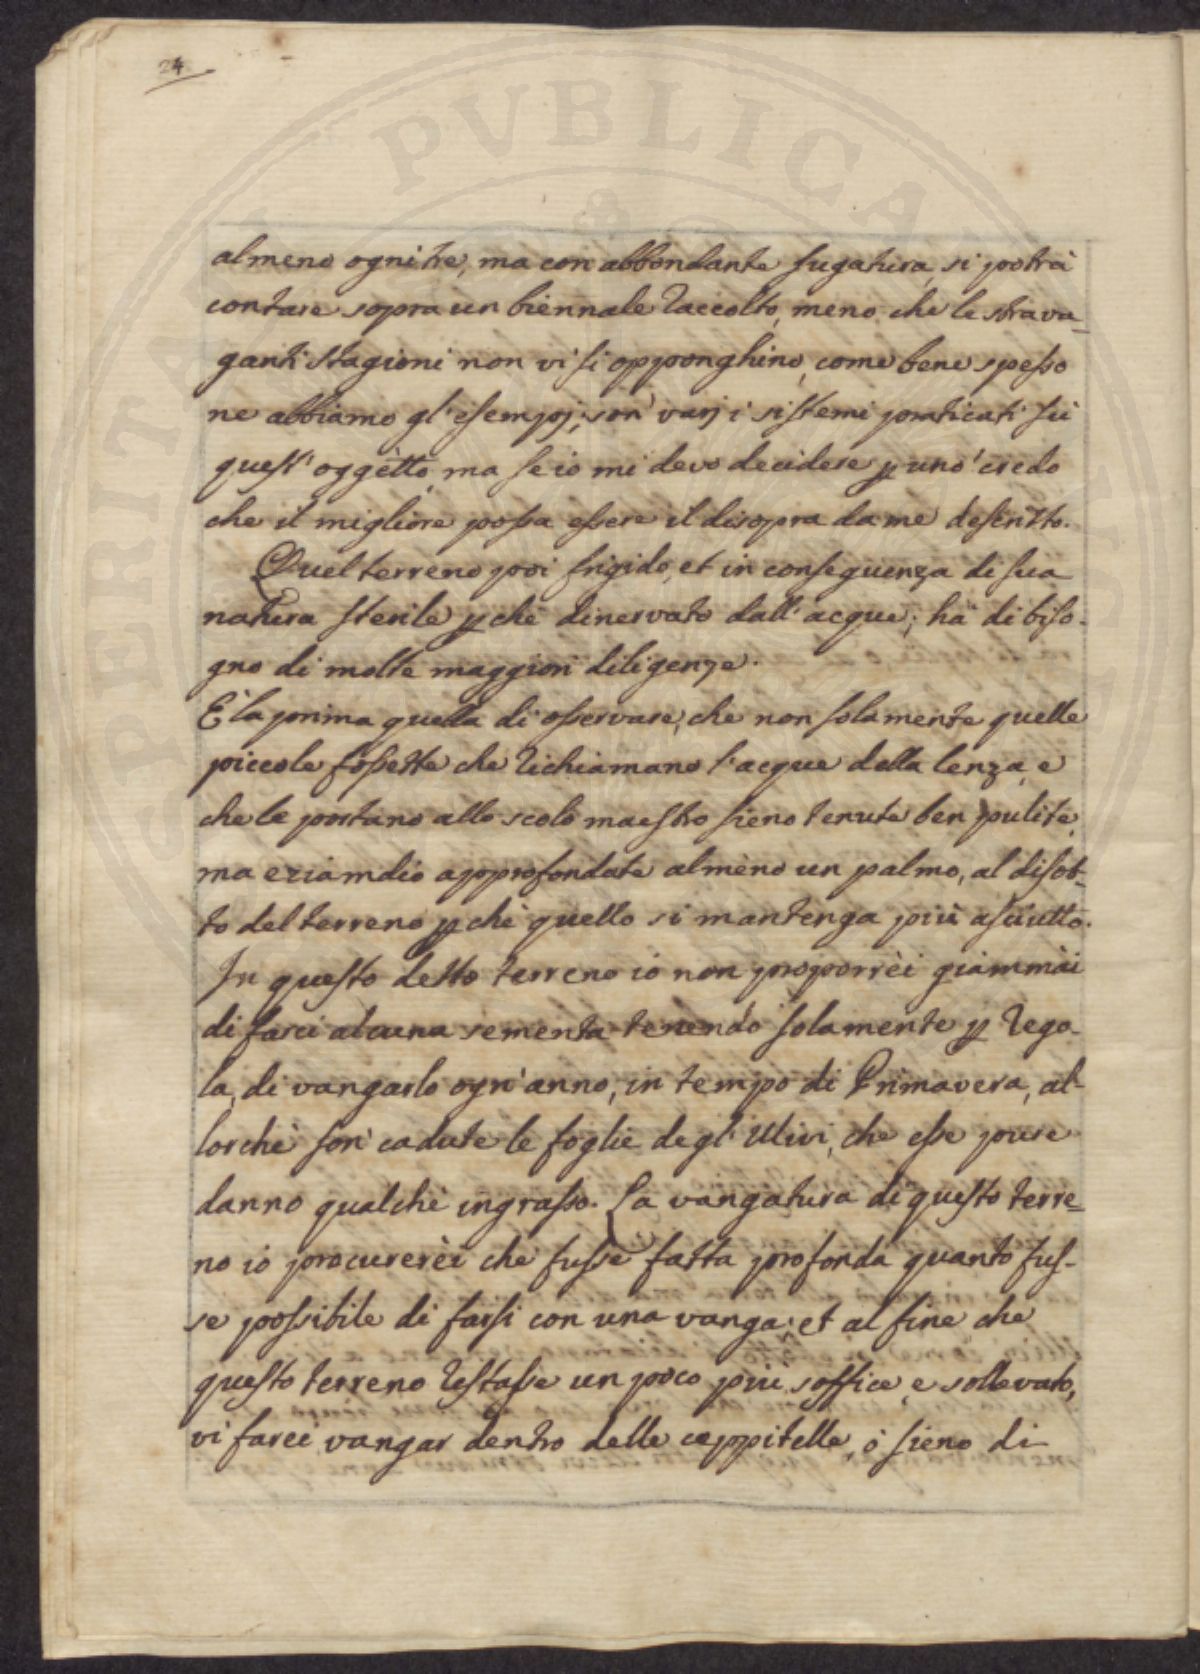 24.
almeno ogni tre, ma con abbondante sugatura, si potrà
contare sopra un biennale raccolto, meno che le strava-
ganti stagioni non vi si opponghino, come bene spesso
ne abbiamo gl'esempj; son' varj i sistemi praticati sù
quest' oggètto, ma se io mi devo decidere p uno' credo
che il migliore possa essere il disopra da me descritto.
Quel terreno poi frigido, et in conseguenza di sua
natura sterile pchè dinervato dall'acque; hà di biso-
gno di molte maggiori diligenze.
E' la prima quella di osservare, che non solamente quelle
piccole fossette che richiamano l'acque dalla lenza, e
che le portano allo scolo maestro sieno tenute ben pulite,
ma eziamdio approfondate almèno un palmo, al disot-
to del terreno pchè quello si mantenga più asciutto.
In questo detto terreno io non proporrèi giammài
di farci alcuna sementa tenendo solamente p rego-
la, di vangarlo ogn'anno, in tempo di Primavera, al-
lorchè son' cadute le foglie degl'Ulivi, che esse pure
danno qualchè ingrasso. La vangatura di questo terre-
no io procurerèi che fusse fatta profonda quanto fus-
se possibile di farsi con una vanga; et al fine che
questo terreno restasse un poco più soffice, e sollevato,
vi farei vangar dentro delle cappitelle, ò sieno di
PERITAT PVBLICAE